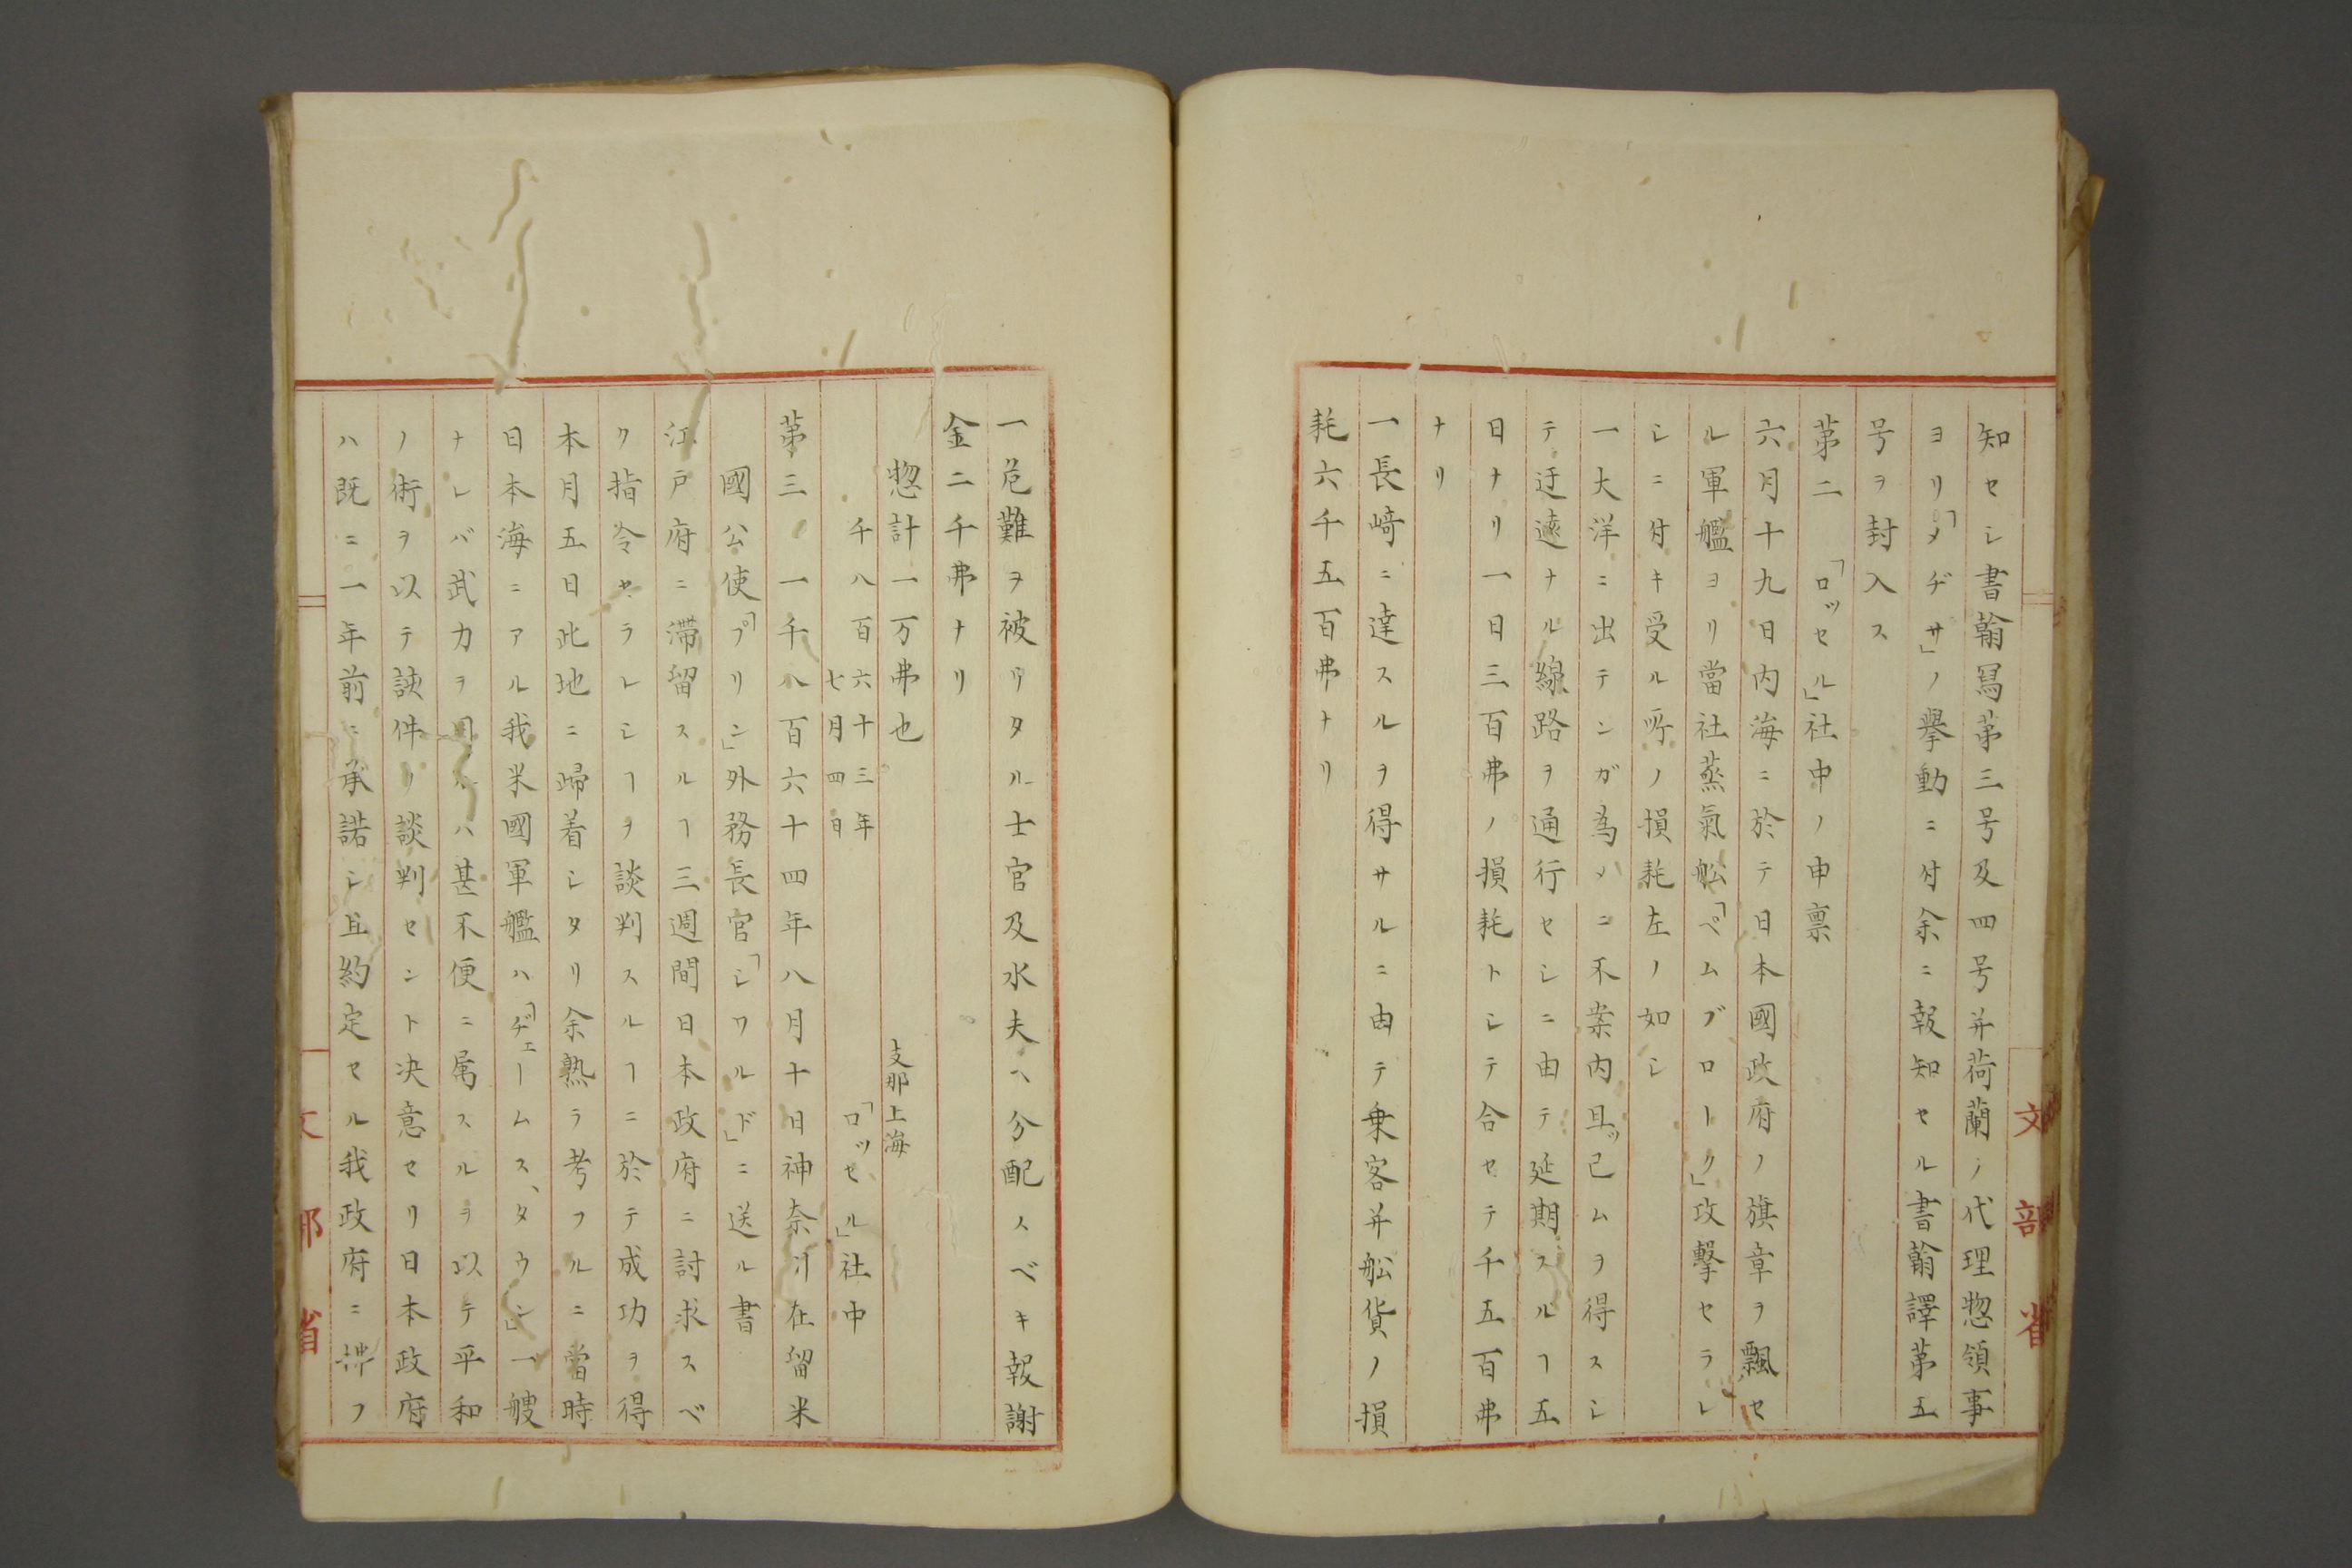 知セシ書翰冩第三号及四号并荷蘭ノ代理惣領事
ヨリ「メヂサ」ノ擧動ニ付余ニ報知セル書翰譯第五
号ヲ封入ス
第二　「ロッセル」社中ノ申禀
六月十九日内海ニ於テ日本國政府ノ旗章ヲ飄セ
ル軍艦ヨリ當社蒸氣舩「ペムブローク」攻擊セラレ
シニ付キ受ル所ノ損耗左ノ如シ
一大洋ニ出テンガ爲メニ不案内且ッ已ムヲ得スシ
テ迂遠ナル線路ヲ通行セシニ由テ延期スルヿ五
日ナリ一日三百弗ノ損耗トシテ合セテ千五百弗
ナリ
一長﨑ニ達スルヲ得サルニ由テ乗客并舩貨ノ損
耗六千五百弗ナリ
文部省
一危難ヲ被リタル士官及水夫ヘ分配スベキ報謝
金二千弗ナリ
惣計一万弗也
支那上海
千八百六十三年
七月四日
「ロッセル」社中
第三　一千八百六十四年八月十日神奈川在留米
國公使「プリン」外務長官「シワルド」ニ送ル書
江戸府ニ滞留スルヿ三週間日本政府ニ討求スベ
ク指令セラレシヿヲ談判スルヿニ於テ成功ヲ得
本月五日此地ニ歸着シタリ余熟ラ考フルニ當時
日本海ニアル我米國軍艦ハ「ヂェームス、タウン」一艘
ナレバ武力ヲ用ハ甚不便ニ属スルヲ以テ平和
ノ術ヲ以テ該件リ談判セント决意セリ日本政府
ハ既ニ一年前ニ承諾シ且約定セル我政府ニ拂フ
文部省